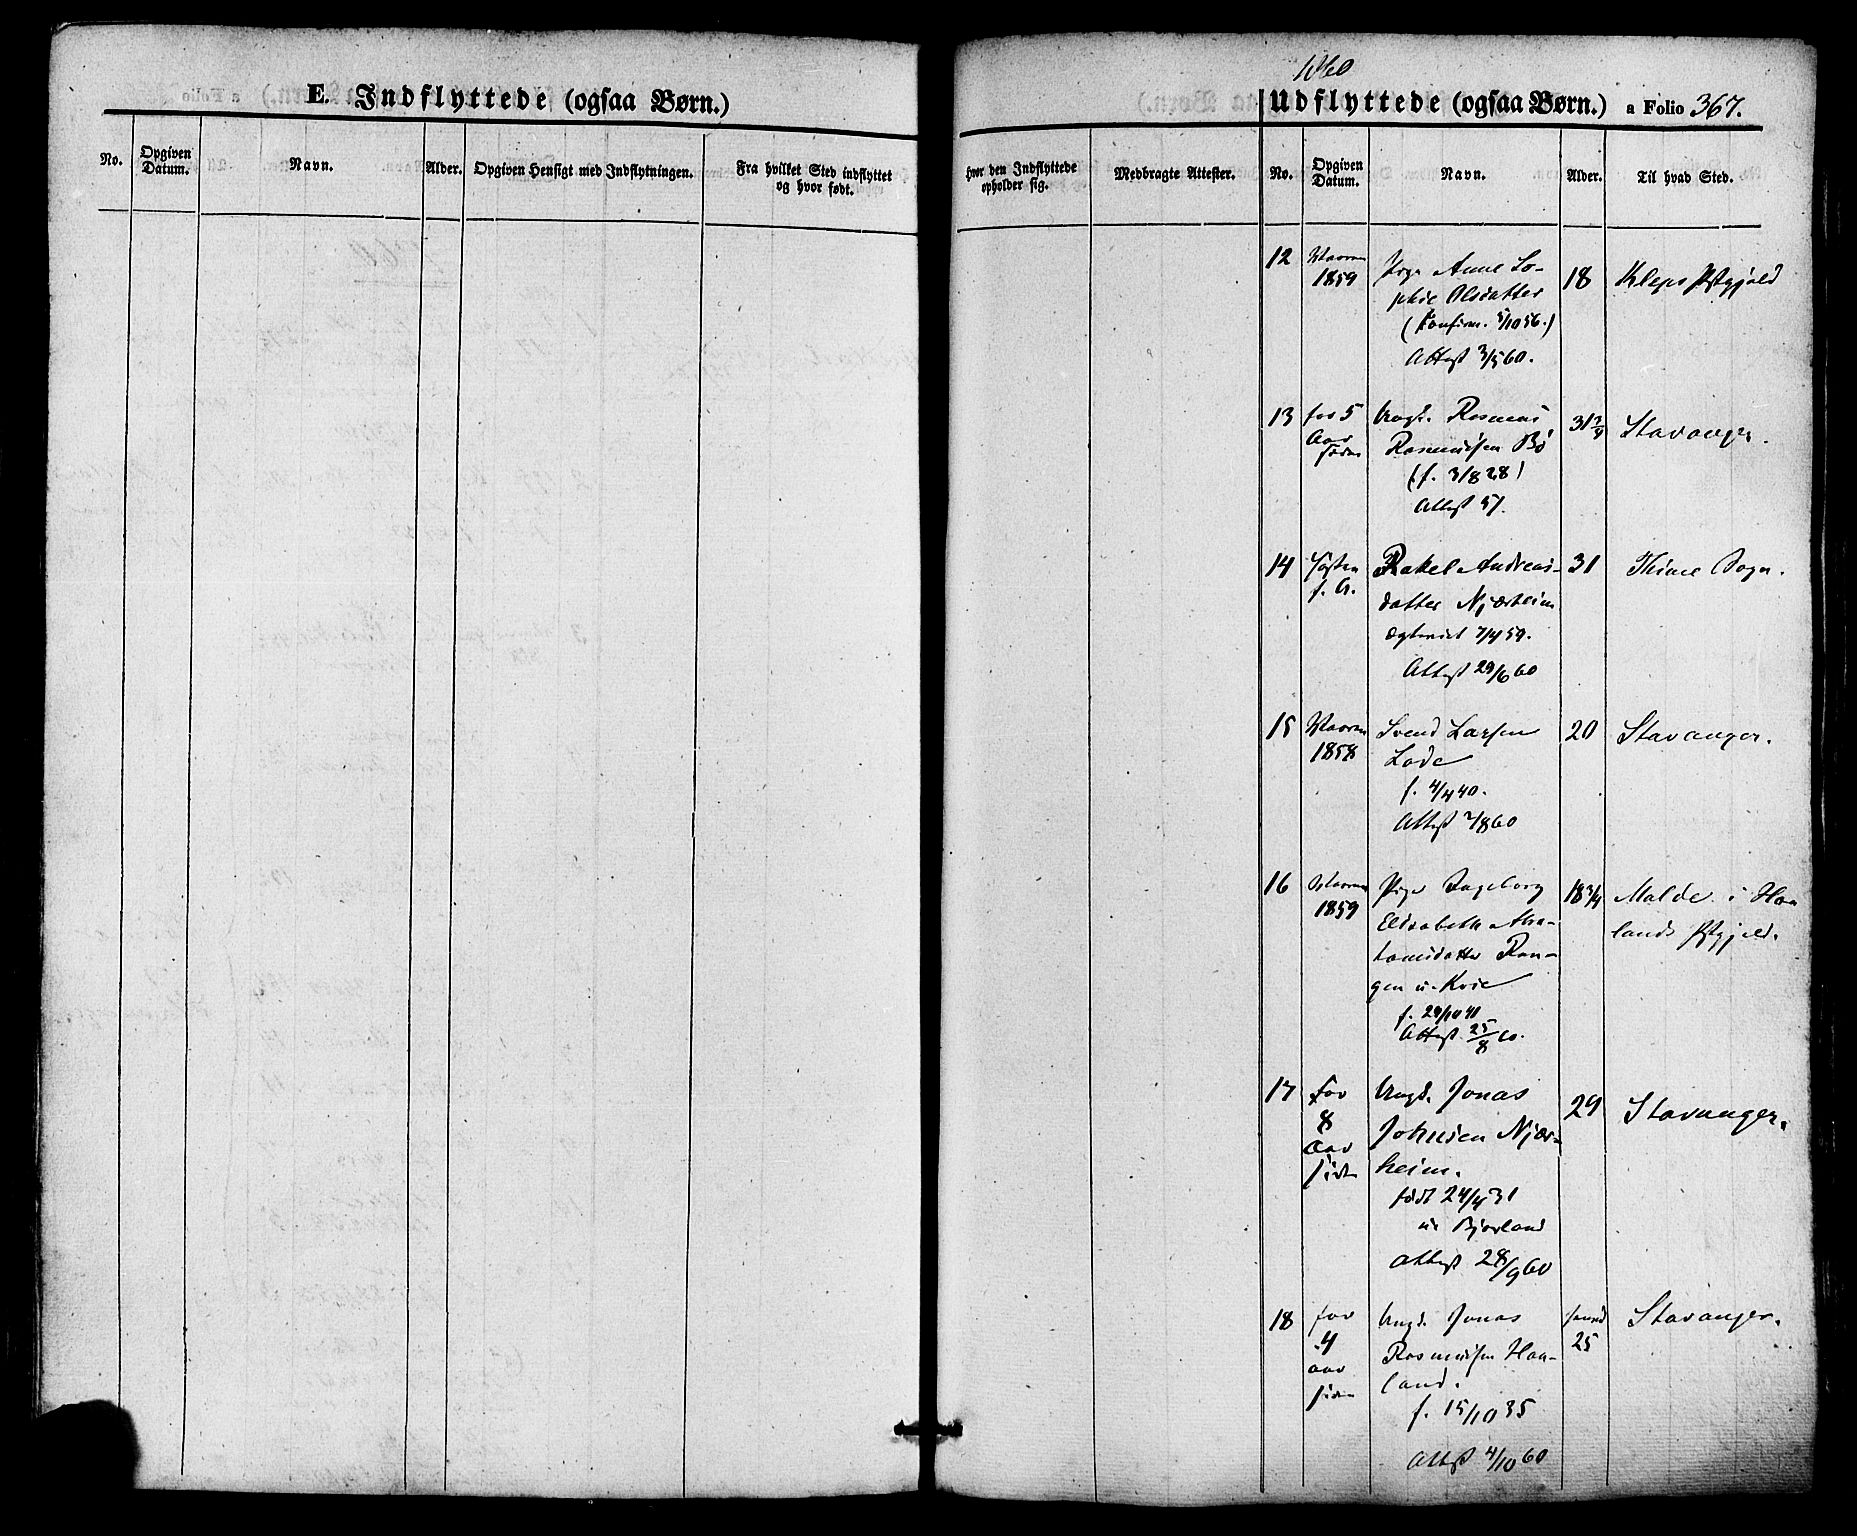 E. Indflyttede (ogsaa Børn.)
No.
Opgiven Datum.
Navn.
Alder.
Opgiven Hensigt med Indflytningen.
Fra hvilket Sted indflyttet
og hvor født.
1860
Udflyttede (ogsaa Børn.) a Folio 367.
Hvor den Indflyttede
opholder sig.
Medbragte Attester.
No.
Opgiven
Datum.
Navn.
Alder.
Til hvad Sted.
12 Vaaren 1859
Pige Anne So-
phie Olsdatter
(Konfirm. 5/10 56.)
Attest 3/5 60.
18
Kleps Pstgjeld
13 for 5
Aar
siden
Ungk. Rasmus
Rasmussen Bø
(f. 3/8 28)
Attest 5/7.
31 3/4
Stavanger.
14 Høsten
f. A.
Rakel Andreas-
datter Njærheim
ægteviet 7/4 59.
Attest 29/6 60
31
Thime Sogn.
15 Vaaren
1858
Svend Larsen
Lode
f. 4/4 40.
Attest 7/8 60
20
Stavanger.
16 Vaaren
1859
Pige Ingeborg
Elisabeth Abra-
hamsdatter Ran-
gen u. Kvie
f. 29/10 41
Attest 25/8 60.
18 3/4
Malde i Haa
lands Pstgjeld.
17 For
8
Aar
siden
Ungk. Jonas
Johnsen Njær-
heim.
født 24/4 31
u. Bjorland
Attest 28/9 60
29
Stavanger.
18 for
4
aar
siden
Ungk. Jonas
Rasmussen Haa-
land.
f. 15/10 35
Attest 4/10 60
25
Stavanger.